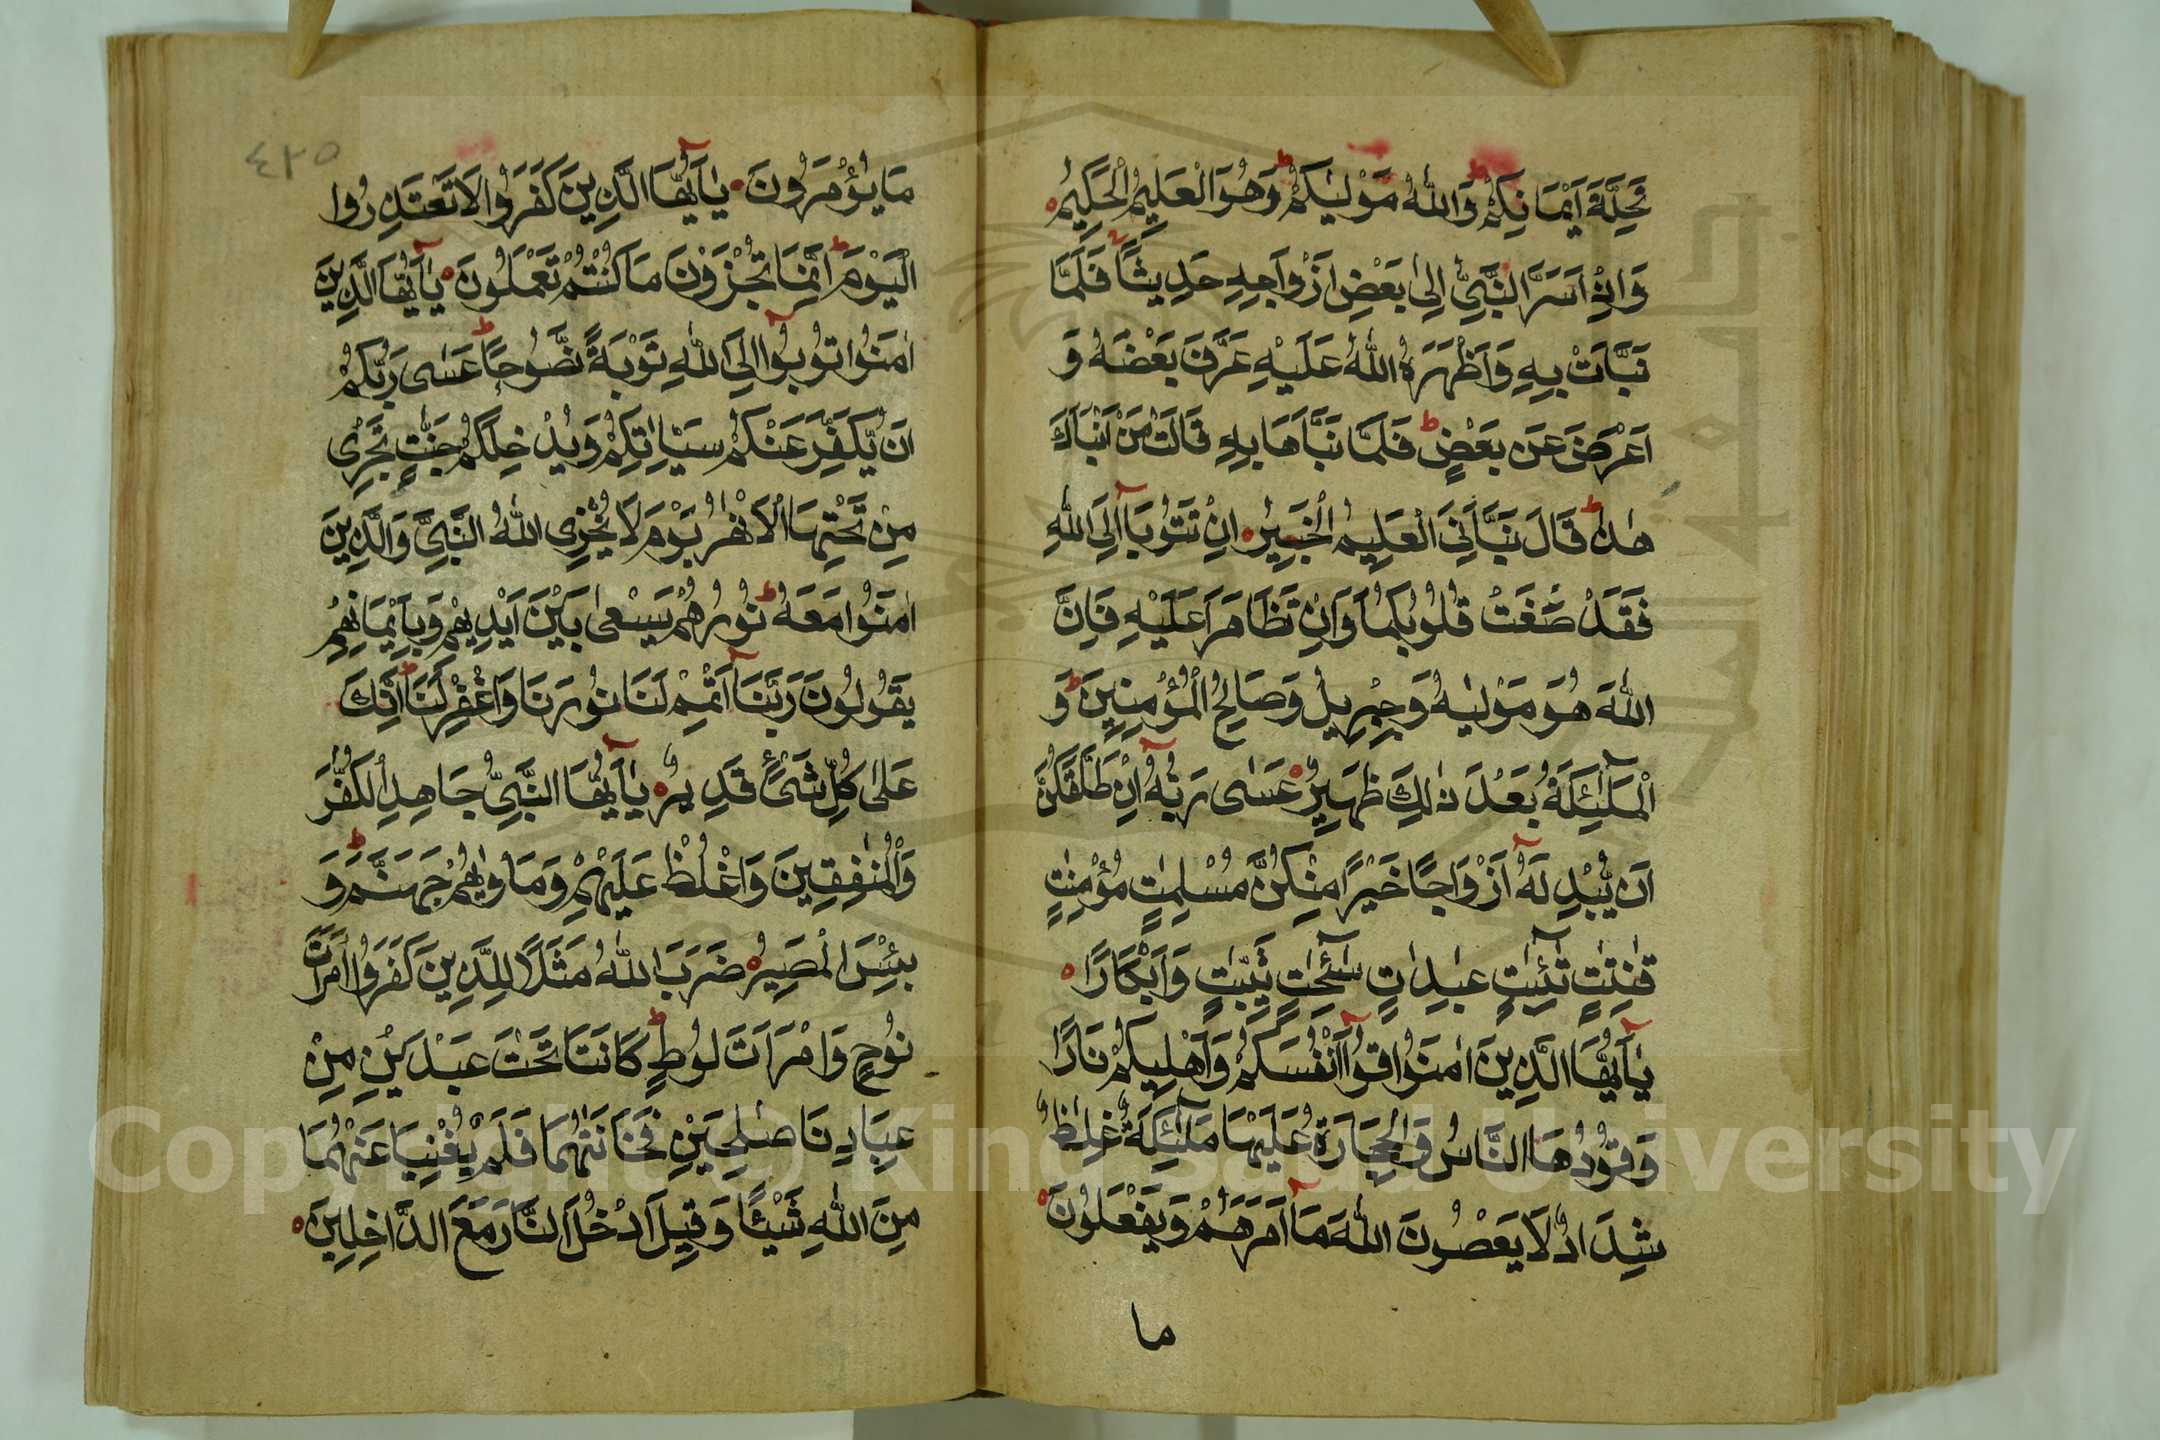 تَحِلَّةَ اَيْمَانِكُمْ وَاللّٰهُ مَوْلٰيكُمْ وَهُوَ الْعَلِيمُ الْحَكِيمُ
وَاِذْ اَسَرَّ النَّبِيُّ اِلٰى بَعْضِ اَزْوَاجِهِ حَدِيثًا فَلَمَّا
نَبَّاَتْ بِهِ وَاَظْهَرَهُ اللّٰهُ عَلَيْهِ عَرَّفَ بَعْضَهُ وَ
اَعْرَضَ عَنْ بَعْضٍ فَلَمَّا نَبَّاَهَا بِهِ قَالَتْ مَنْ اَنْبَاَكَ
هٰذَا قَالَ نَبَّاَنِيَ الْعَلِيمُ الْخَبِيرُ اِنْ تَتُوبَا اِلَى اللّٰهِ
فَقَدْ صَغَتْ قُلُوبُكُمَا وَاِنْ تَظَاهَرَا عَلَيْهِ فَاِنَّ
اللّٰهَ هُوَ مَوْلٰيهُ وَجِبْرِيلُ وَصَالِحُ الْمُؤْمِنِينَ وَ
الْمَلٰئِكَةُ بَعْدَ ذٰلِكَ ظَهِيرٌ عَسٰى رَبُّهُ اِنْ طَلَّقَكُنَّ
اَنْ يُبْدِلَهُ اَزْوَاجًا خَيْرًا مِنْكُنَّ مُسْلِمٰتٍ مُؤْمِنٰتٍ
قٰنِتٰتٍ تٰئِبٰتٍ عٰبِدٰتٍ سٰئِحٰتٍ ثَيِّبٰتٍ وَاَبْكَارًا
يٰاَيُّهَا الَّذِينَ اٰمَنُوا قُوا اَنْفُسَكُمْ وَاَهْلِيكُمْ نَارًا
وَقُودُهَا النَّاسُ وَالْحِجَارَةُ عَلَيْهَا مَلٰئِكَةٌ غِلَاظٌ
شِدَادٌ لَا يَعْصُونَ اللّٰهَ مَا اَمَرَهُمْ وَيَفْعَلُونَ
ما
٤٢٥
مَا يُؤْمَرُونَ يٰاَيُّهَا الَّذِينَ كَفَرُوا لَا تَعْتَذِرُوا
الْيَوْمَ اِنَّمَا تُجْزَوْنَ مَا كُنْتُمْ تَعْمَلُونَ يٰاَيُّهَا الَّذِينَ
اٰمَنُوا تُوبُوا اِلَى اللّٰهِ تَوْبَةً نَصُوحًا عَسٰى رَبُّكُمْ
اَنْ يُكَفِّرَ عَنْكُمْ سَيِّاٰتِكُمْ وَيُدْخِلَكُمْ جَنّٰتٍ تَجْرِى
مِنْ تَحْتِهَا الْاَنْهٰرُ يَوْمَ لَا يُخْزِى اللّٰهُ النَّبِيَّ وَالَّذِينَ
اٰمَنُوا مَعَهُ نُورُهُمْ يَسْعٰى بَيْنَ اَيْدِيهِمْ وَبِاَيْمَانِهِمْ
يَقُولُونَ رَبَّنَا اَتْمِمْ لَنَا نُورَنَا وَاغْفِرْ لَنَا اِنَّكَ
عَلٰى كُلِّ شَىْءٍ قَدِيرٌ يٰاَيُّهَا النَّبِيُّ جَاهِدِ الْكُفَّارَ
وَالْمُنٰفِقِينَ وَاغْلُظْ عَلَيْهِمْ وَمَاْوٰيهُمْ جَهَنَّمُ وَ
بِئْسَ الْمَصِيرُ ضَرَبَ اللّٰهُ مَثَلًا لِلَّذِينَ كَفَرُوا امْرَاَتَ
نُوحٍ وَامْرَاَتَ لُوطٍ كَانَتَا تَحْتَ عَبْدَيْنِ مِنْ
عِبَادِنَا صٰلِحَيْنِ فَخَانَتٰهُمَا فَلَمْ يُغْنِيَا عَنْهُمَا
مِنَ اللّٰهِ شَيْئًا وَقِيلَ ادْخُلَا النَّارَ مَعَ الدَّاخِلِينَ
Copyright © King Saud University